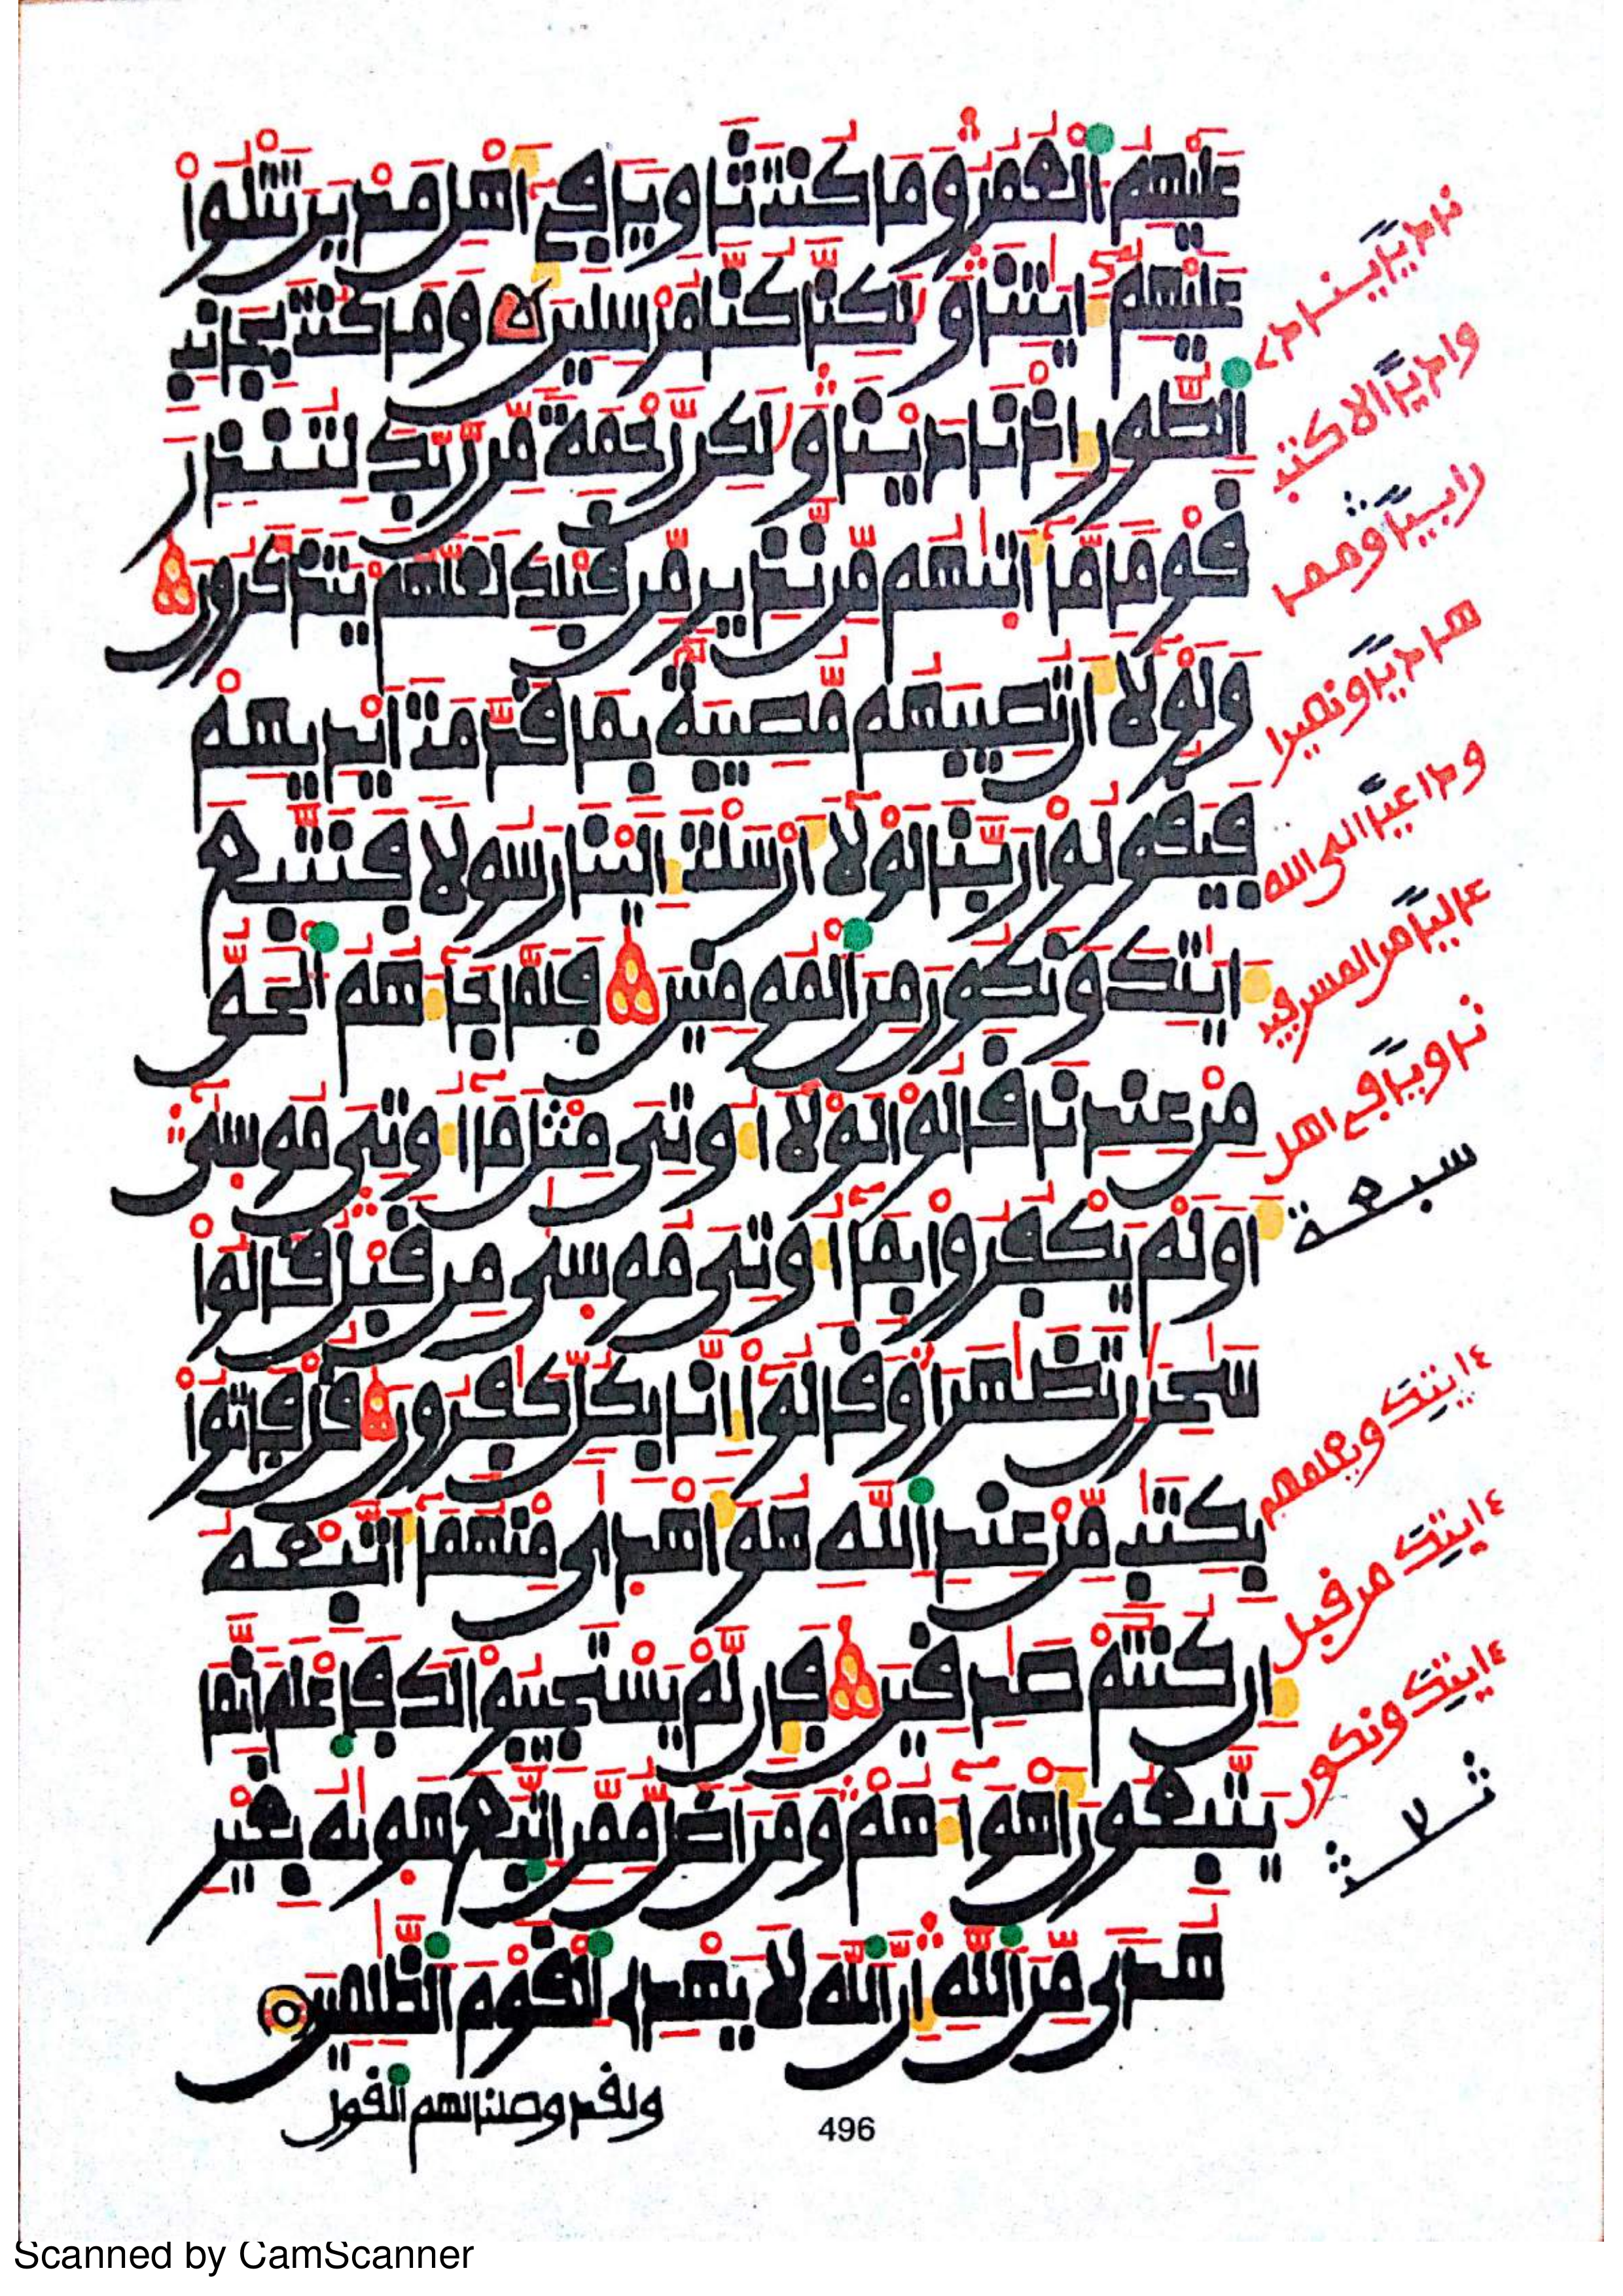 عليهم العمر وما كنت ثاويا في أهل مدين تتلوا
عليهم ءايتنا ولكنا كنا مرسلين وما كنت بجانب
الطور إذ نادينا ولكن رحمة من ربك لتنذر
قوما ما أتيهم من نذير من قبلك لعلهم يتذكرون
ولولا أن تصيبهم مصيبة بما قدمت أيديهم
فيقولوا ربنا لولا أرسلت إلينا رسولا فنتبع
ءايتك ونكون من المومنين فلما جاءهم الحق
من عندنا قالوا لولا أوتي مثل ما أوتي موسى
أولم يكفروا بما أوتي موسى من قبل قالوا
سحرن تظهرا وقالوا إنا بكل كفرون قل فاتوا
بكتب من عند الله هو أهدى منهما أتبعه
إن كنتم صدقين فإن لم يستجيبوا لك فاعلم أنما
يتبعون أهواءهم ومن أضل ممن اتبع هويه بغير
هدى من الله إن الله لا يهدي القوم الظلمين
ولقد وصلنا لهم القول
496
وداعيا الى الله
ثاويا في اهل
سبعة
ءايتك ويعلمهم
ءايتك من قبل
ءايتك ونكون
ثلاث
Scanned by CamScanner